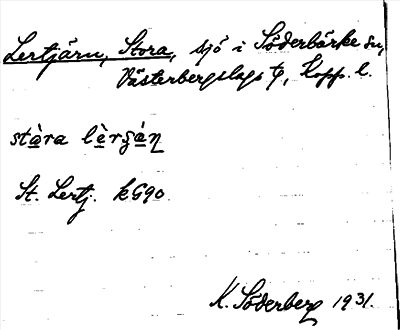 Lertjärn, Stora, sjö i Söderbärke sn,
Västerbergslags tg, Kopp. l.
stàra lèrʂàn
St. Lertj. kG90
K. Söderberg 1931.